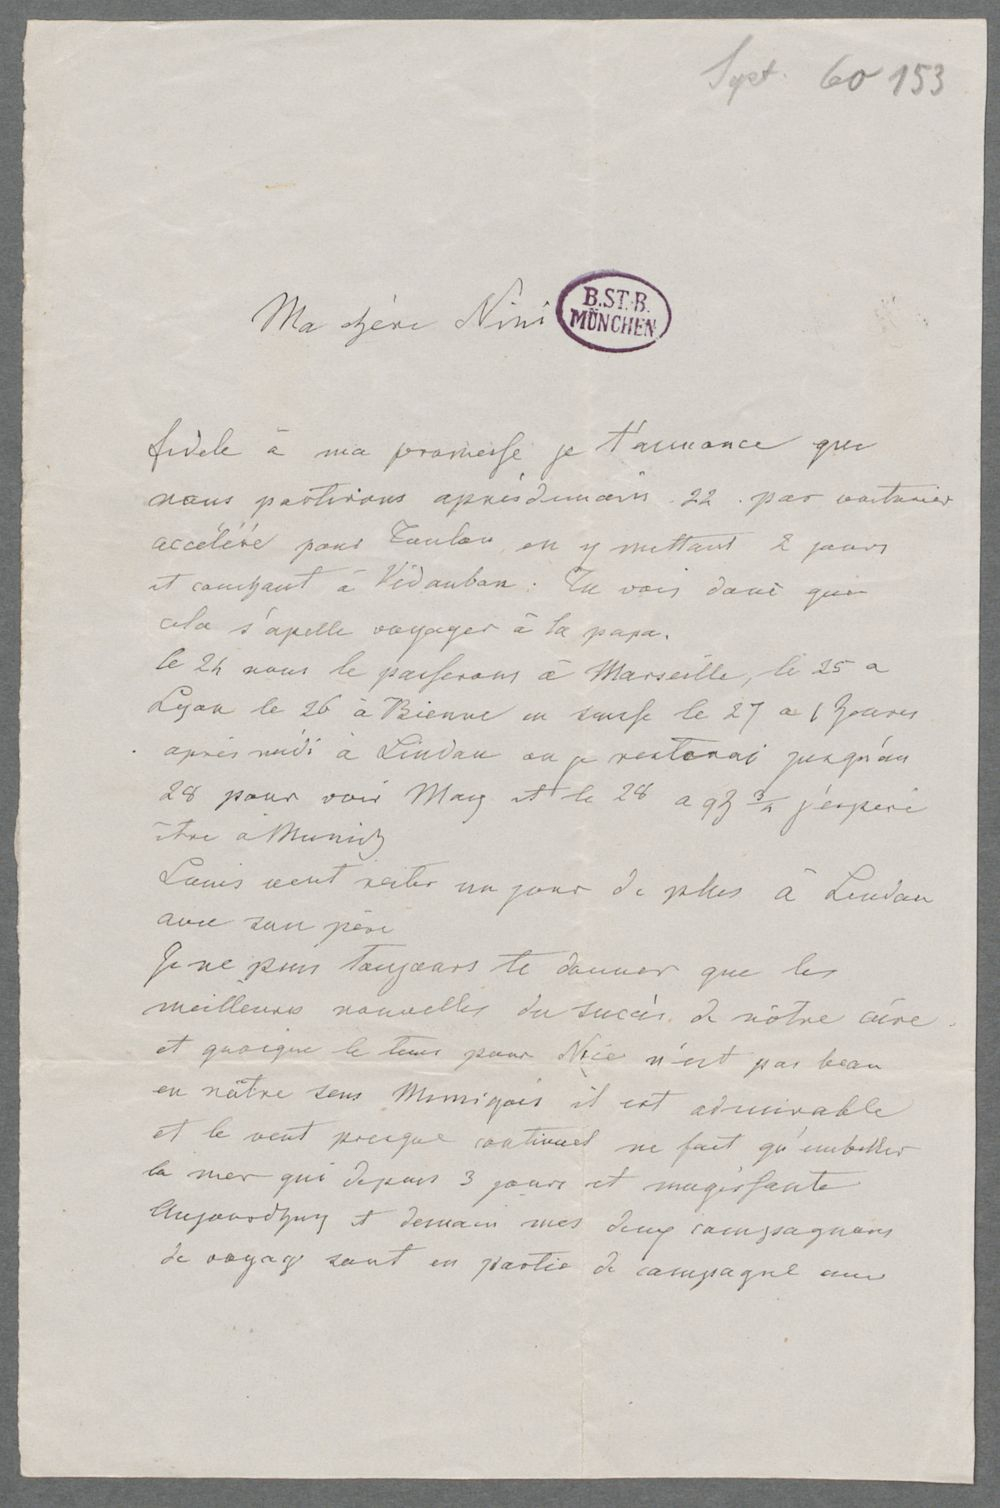 Sept. 60 153
Ma chère Nini
B.ST.B.
MÜNCHEN
fidele à ma promesse je t'annonce que
nous partirons aprèsdemain 22. par voiturier
accéléré pour Toulon en y mettant 2 jours
et couchant à Vidauban. Tu vois donc que
cela s'apelle voyager à la papa.
le 24 nous le passerons à Marseille, le 25 a
Lyon le 26 à Bienne en suisse le 27 a 6 heures
après midi à Lindau ou je resterai jusqu'au
28 pour voir Max et le 28 a 9h ¾ j'espere
être a Munich
Louis veut rester un jour de plus à Lindau
avec son père
Je ne puis toujours te donner que les
meilleures nouvelles du succès de nôtre cure.
et quoique le tems pour Nice n'est pas beau
en nôtre sens Municois il est admirable
et le vent presque continuel ne fait qu'embellir
la mer qui depuis 3 jours et mugissante
Aujourdhuy et demain mes deux compagnons
de voyage sont en partie de campagne avec